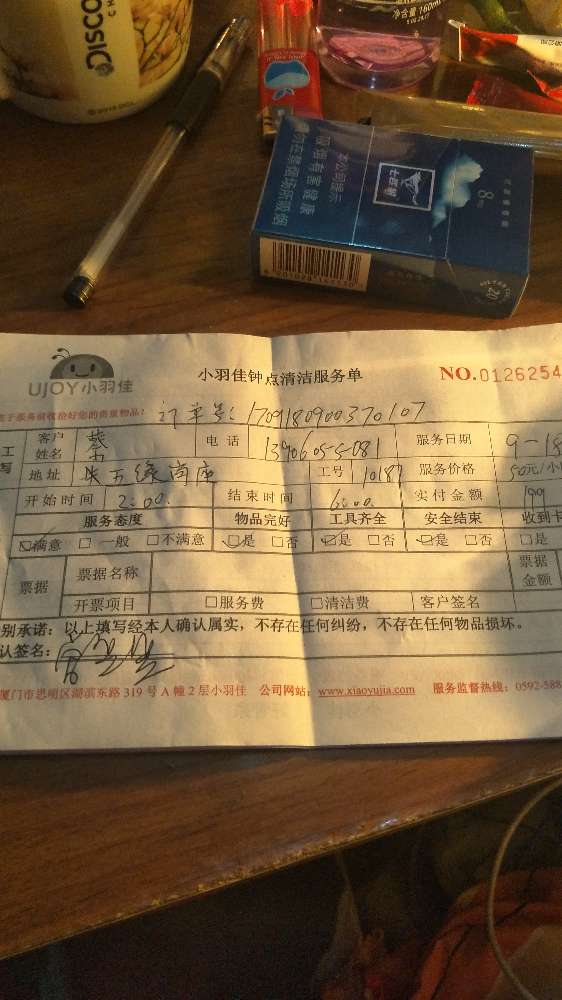 DISCO
净含量 160ml
本公司提示
吸烟有害健康
请勿在禁烟场所吸烟
七匹狼
8mg
UJOY小羽佳
小羽佳钟点清洁服务单
NO.0126254
订单号:1709180900370107
客户姓名
电话
服务日期 9-18
地址
工号 10187
服务价格 50元/小
开始时间 2:00
结束时间 6:00
实付金额 199
服务态度 物品完好 工具齐全 安全结束 收到卡
满意 一般 不满意 是 否 是 否 是 否 是
票据 票据名称 票据金额
开票项目 服务费 清洁费 客户签名
别承诺:以上填写经本人确认属实,不存在任何纠纷,不存在任何物品损坏。
认签名:
厦门市思明区湖滨东路 319 号 A 幢 2 层小羽佳 公司网站:www.xiaoyujia.com 服务监督热线:0592-588